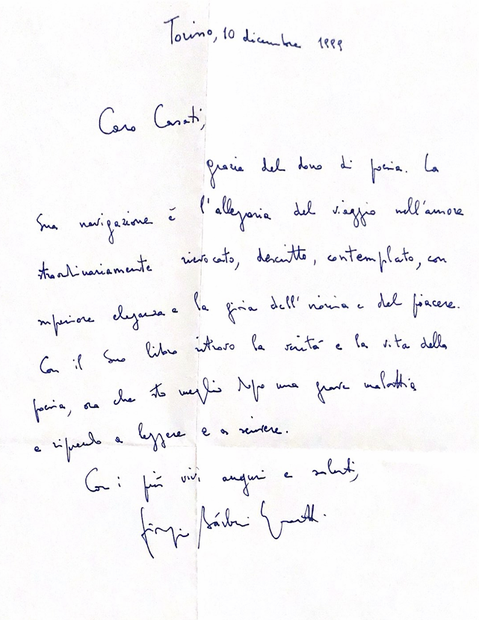 Torino, 10 dicembre 1999
Caro Casati,
grazie del dono di poesia. La
Sua navigazione è l'allegoria del viaggio nell'amore
straordinariamente rievocato, descritto, contemplato, con
superiore eleganza e la gioia dell' e del piacere.
Con il Suo libro ritrovo la verità e la vita della
poesia, ora che sto meglio dopo una grave malattia
e riprendo a leggere e a scrivere.
Con i più vivi auguri e saluti,
Giorgio Bárberi Squarotti